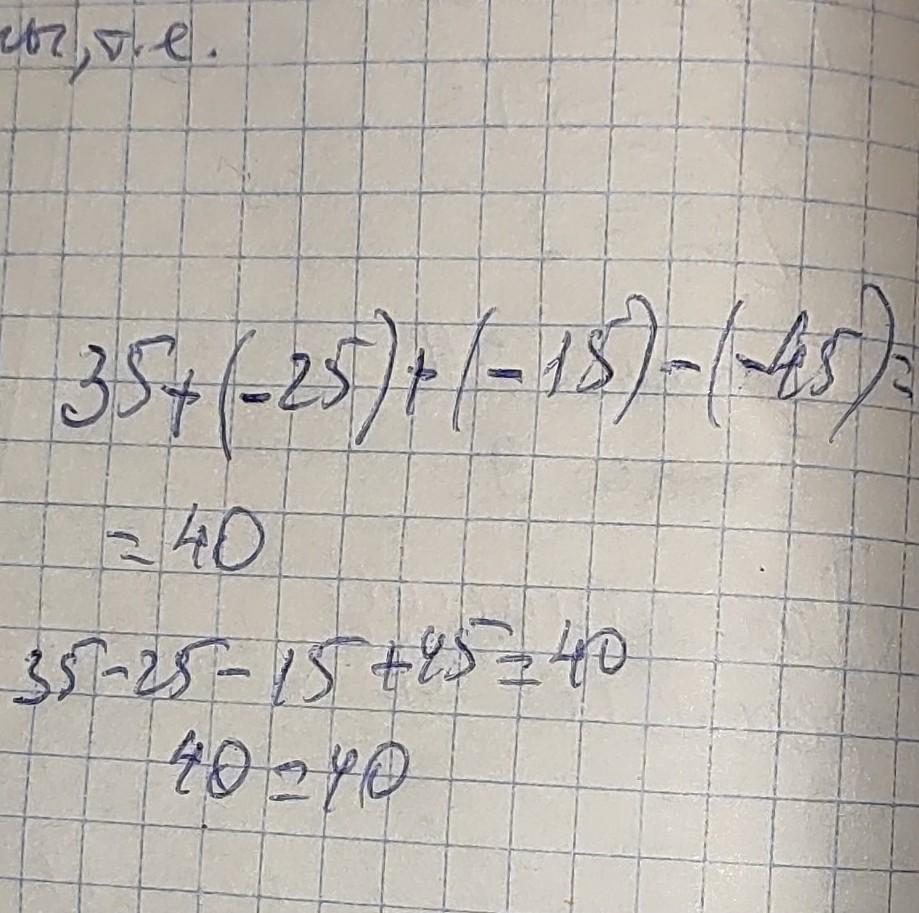 т.е.
35+(-25)+(-15)-(-45)=
=40
35-25-15+45=40
40=40